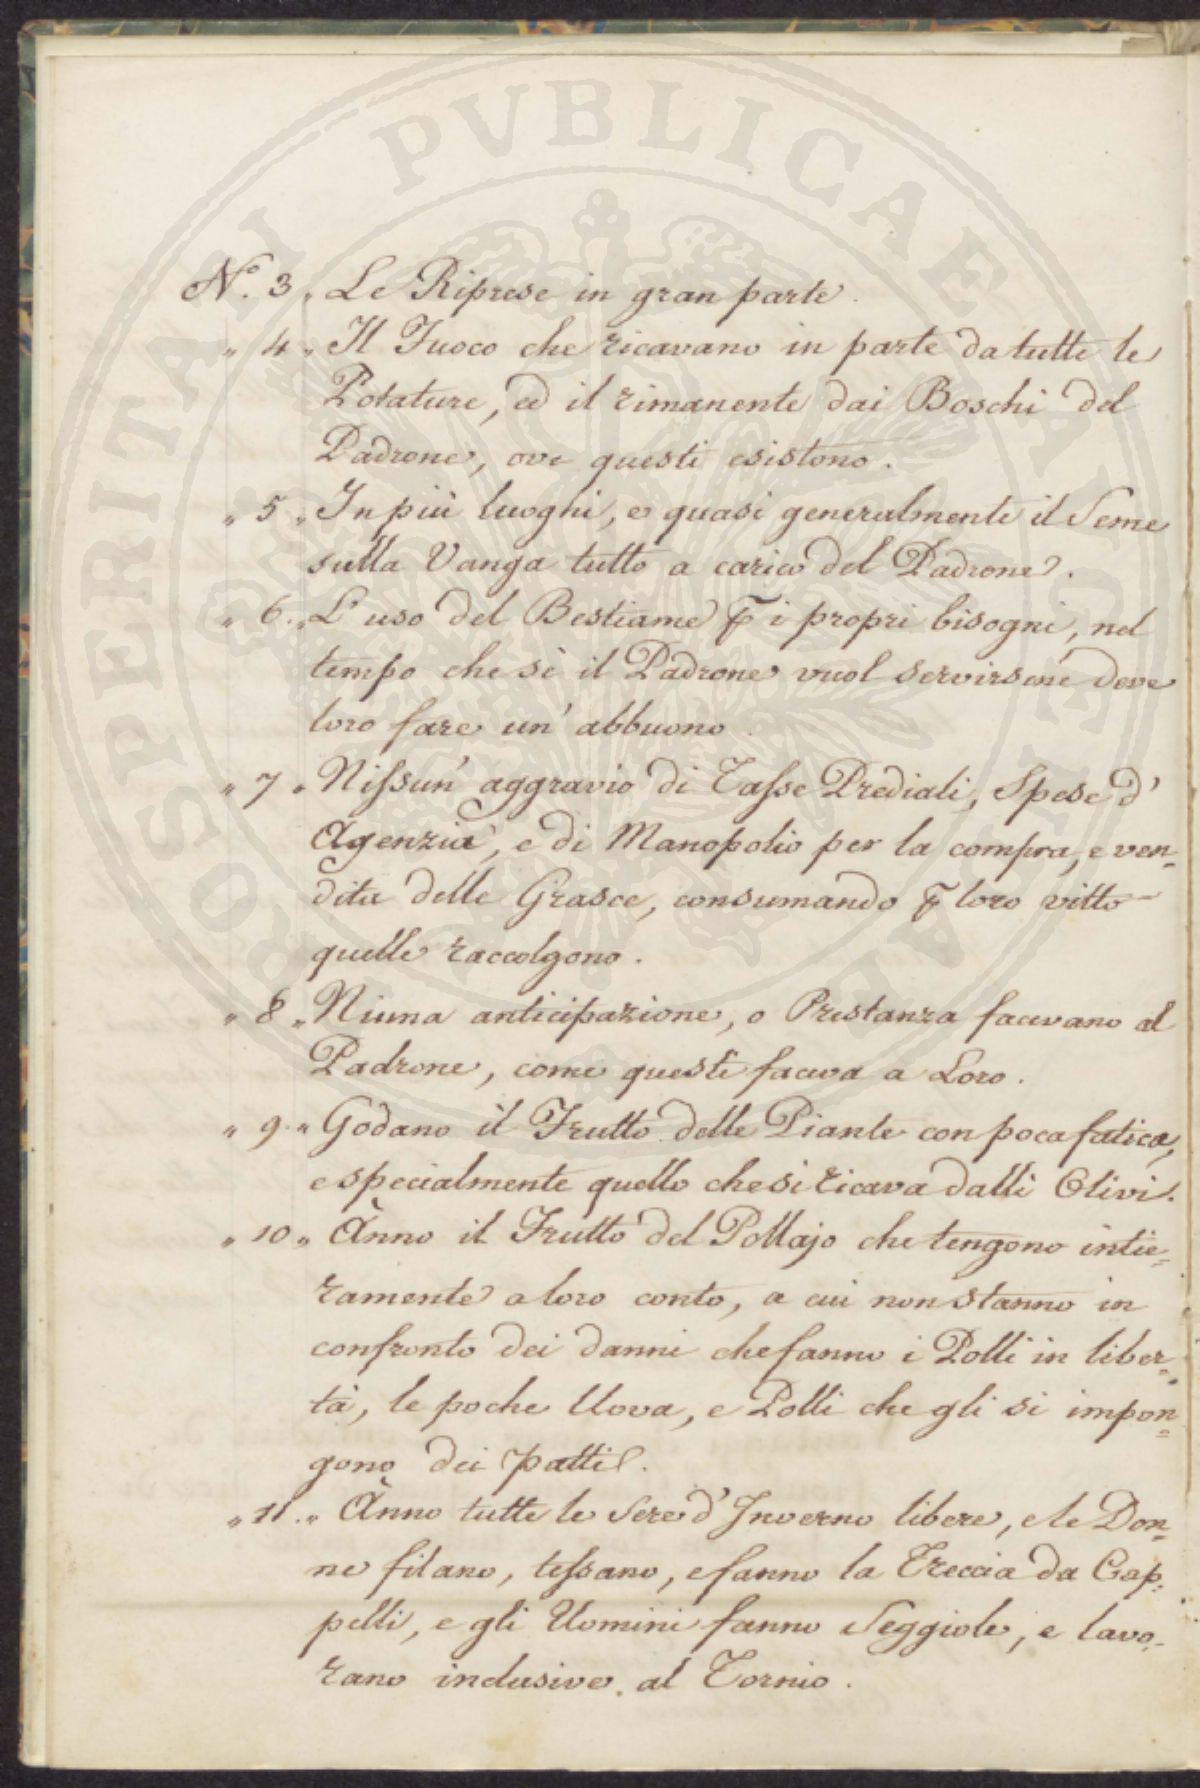 PROSPERITATI PVBLICAE AVGENDAE
N.o 3 „ Le Riprese in gran parte.
„ 4 „ Il Fuoco che ricavano in parte da tutte le
Potature, ed il rimanente dai Boschi del
Padrone, ove questi esistono.
„ 5 „ In più luoghi, e quasi generalmente il Seme
sulla Vanga tutto a carico del Padrone.
„ 6. „ L'uso del Bestiame ꝑ i propri bisogni, nel
tempo che sè il Padrone vuol servirsene deve
loro fare un' abbuono.
„ 7 „ Nissun' aggravio di Tasse Prediali, Spese d'
Agenzia, e di Manopolio per la compra, e ven=
dita delle Grasce, consumando ꝑ loro vitto
quelle raccolgono.
„ 8 „ Niuna anticipazione, o Prestanza facevano al
Padrone, come questi faceva a Loro.
„ 9. „ Godano il Frutto delle Piante con poca fatica,
e specialmente quello che si ricava dalli Olivi.
„ 10 „ Ànno il Frutto del Pollajo che tengono intie=
ramente a loro conto, a cui non stanno in
confronto dei danni che fanno i Polli in liber=
tà, le poche Uova, e Polli che gli si impon=
gono dei patti.
„ 11. „ Ànno tutte le Sere d'Inverno libere, e le Don=
ne filano, tessano, e fanno la Treccia da Cap=
pelli, e gli Uomini fanno Seggiole, e lavo=
rano inclusive al Tornio.